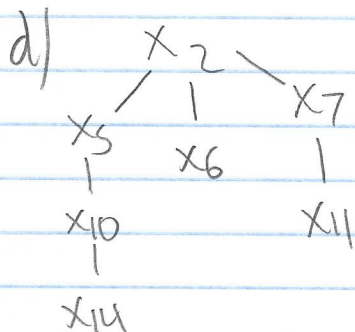 d) X2
X5 X6 X7
X10 X11
X14